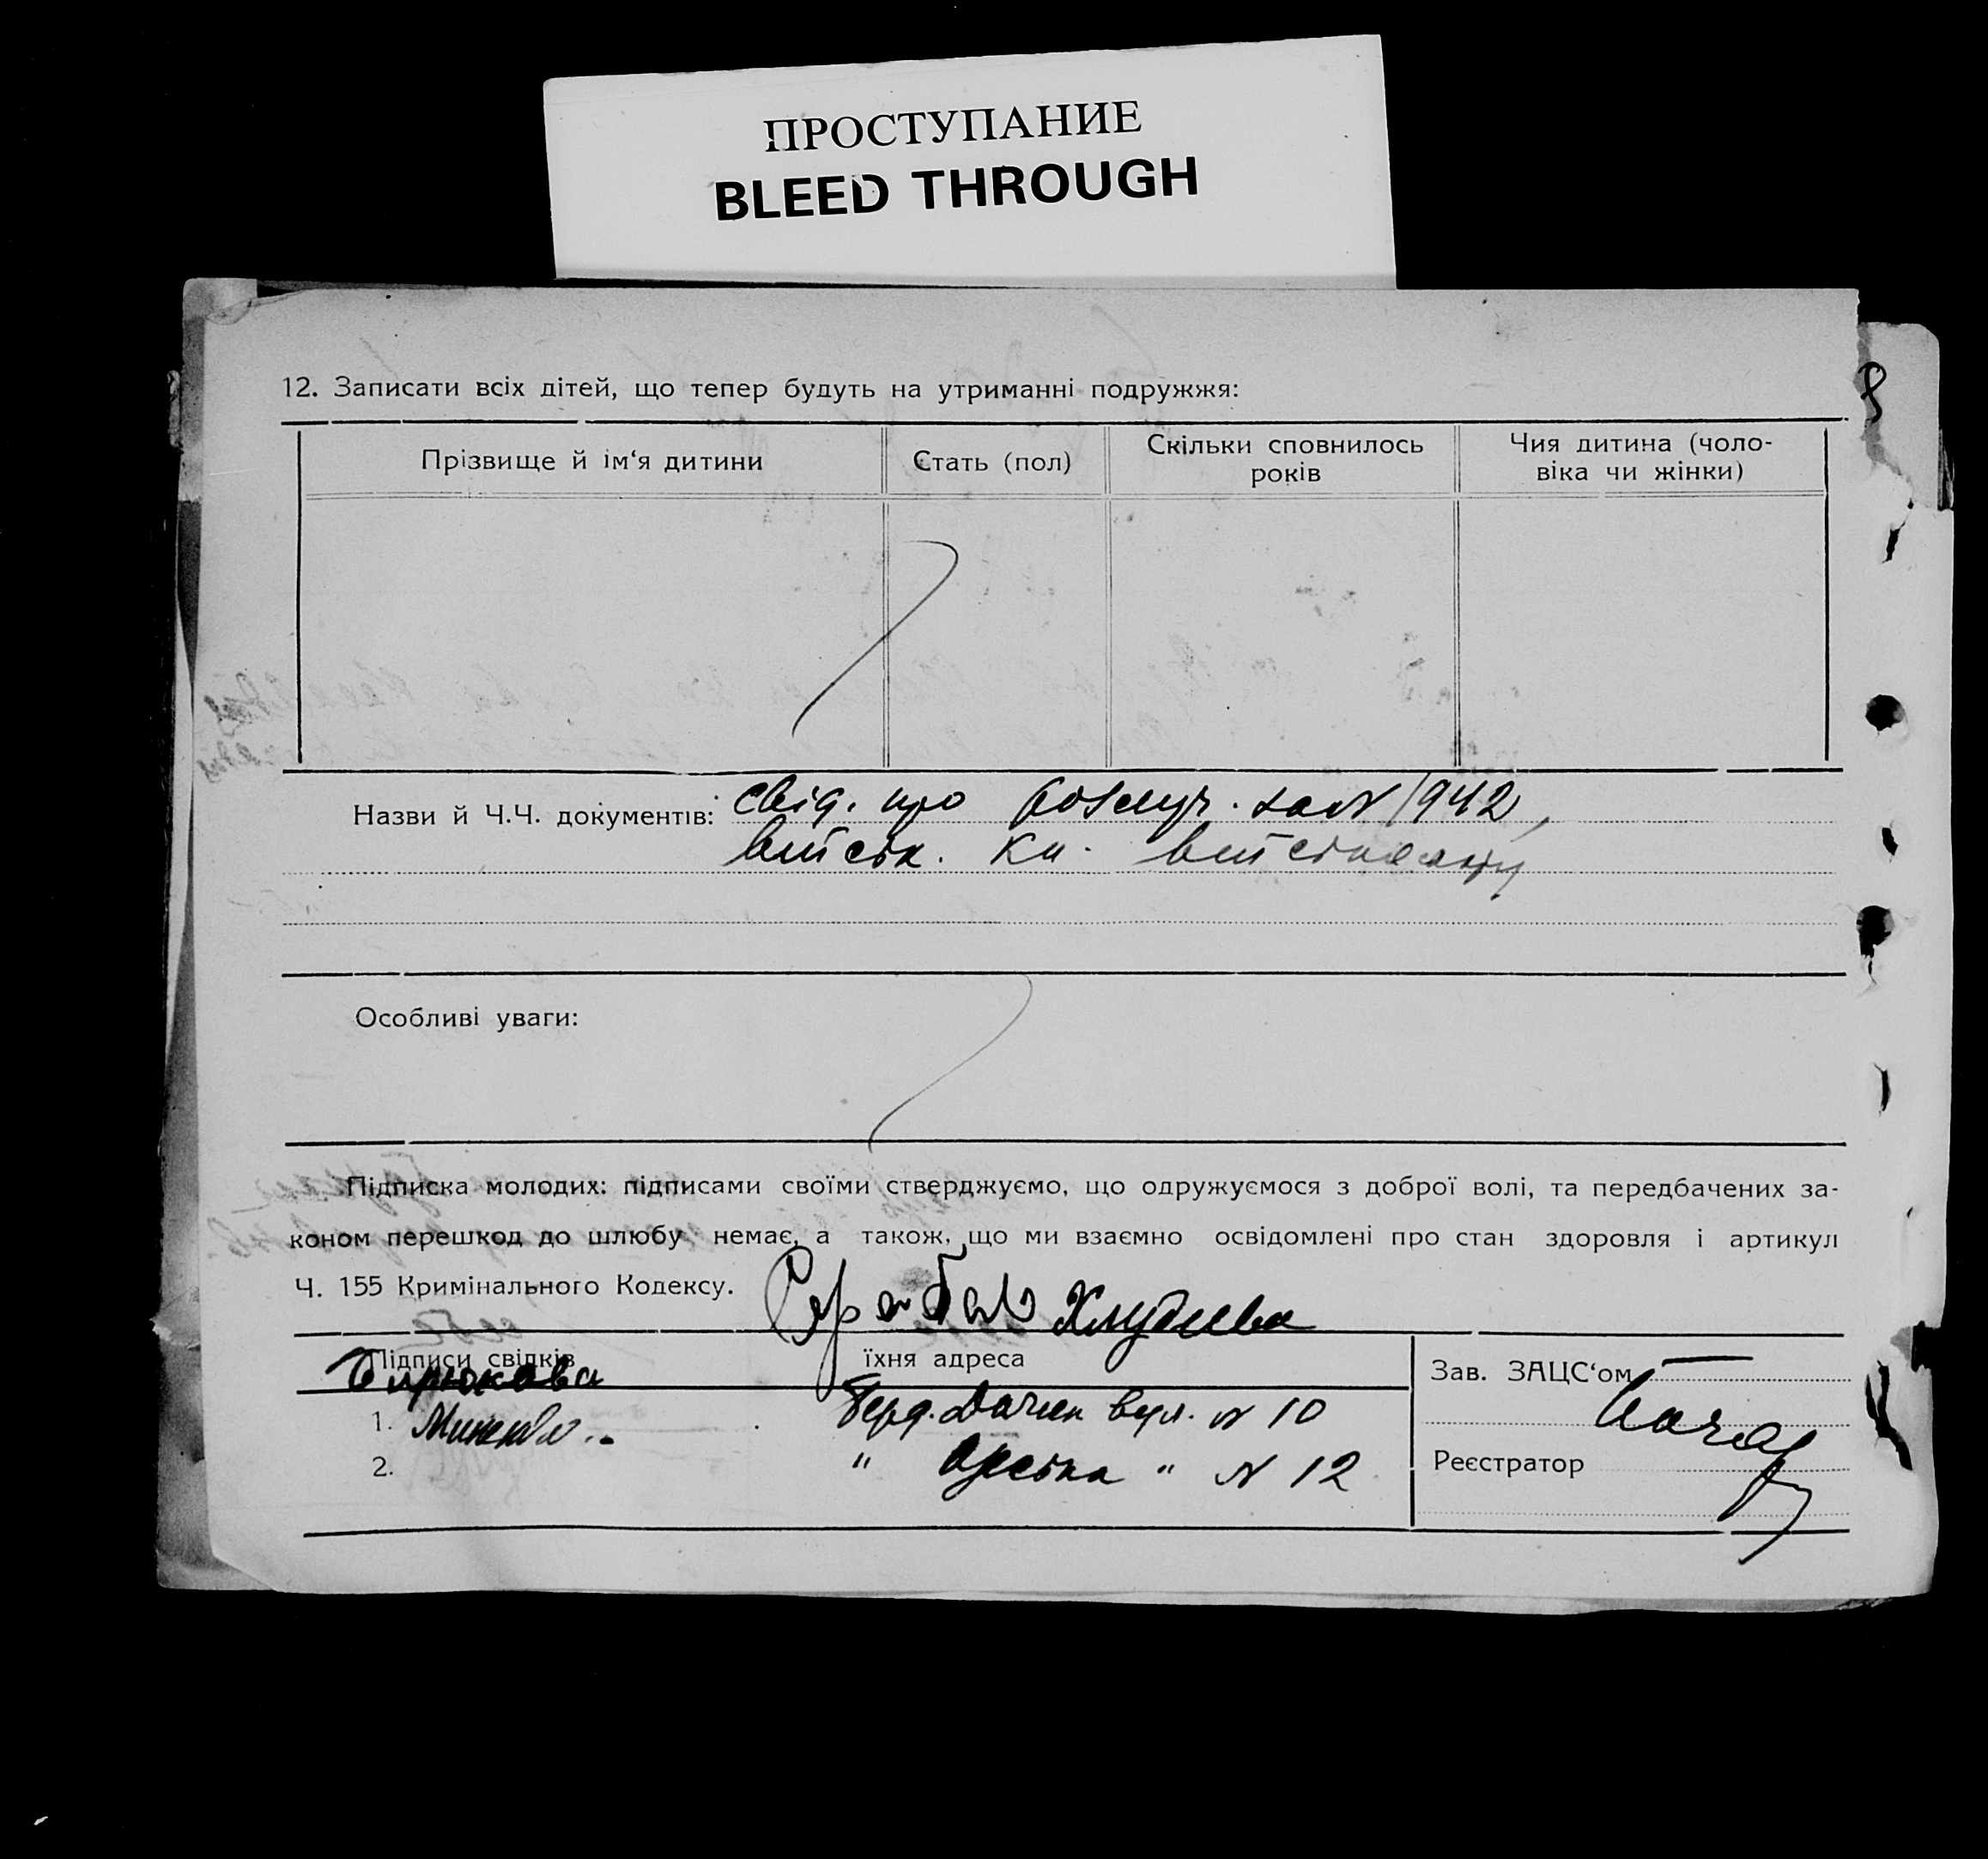 ПРОСТУПАНИЕ
BLEED THROUGH
8
12. Записати всіх дітей, що тепер будуть на утриманні подружжя:
Прізвище й ім‘я дитини
Стать (пол)
Скільки сповнилось
років
Чия дитина (чоло-
віка чи жінки)
Назви й Ч.Ч. документів: свід. про розлуч. 1942,
військ. кн.
Особливі уваги:
Підписка молодих: підписами своїми стверджуємо, що одружуємося з доброї волі, та передбачених за-
коном перешкод до шлюбу немає, а також, що ми взаємно освідомлені про стан здоровля і артикул
Ч. 155 Кримінального Кодексу.
Підписи свідків
їхня адреса
Бирюкова
1. Берд. вул. N 10
2. " " N 12
Зав. ЗАЦС‘ом
Реєстратор